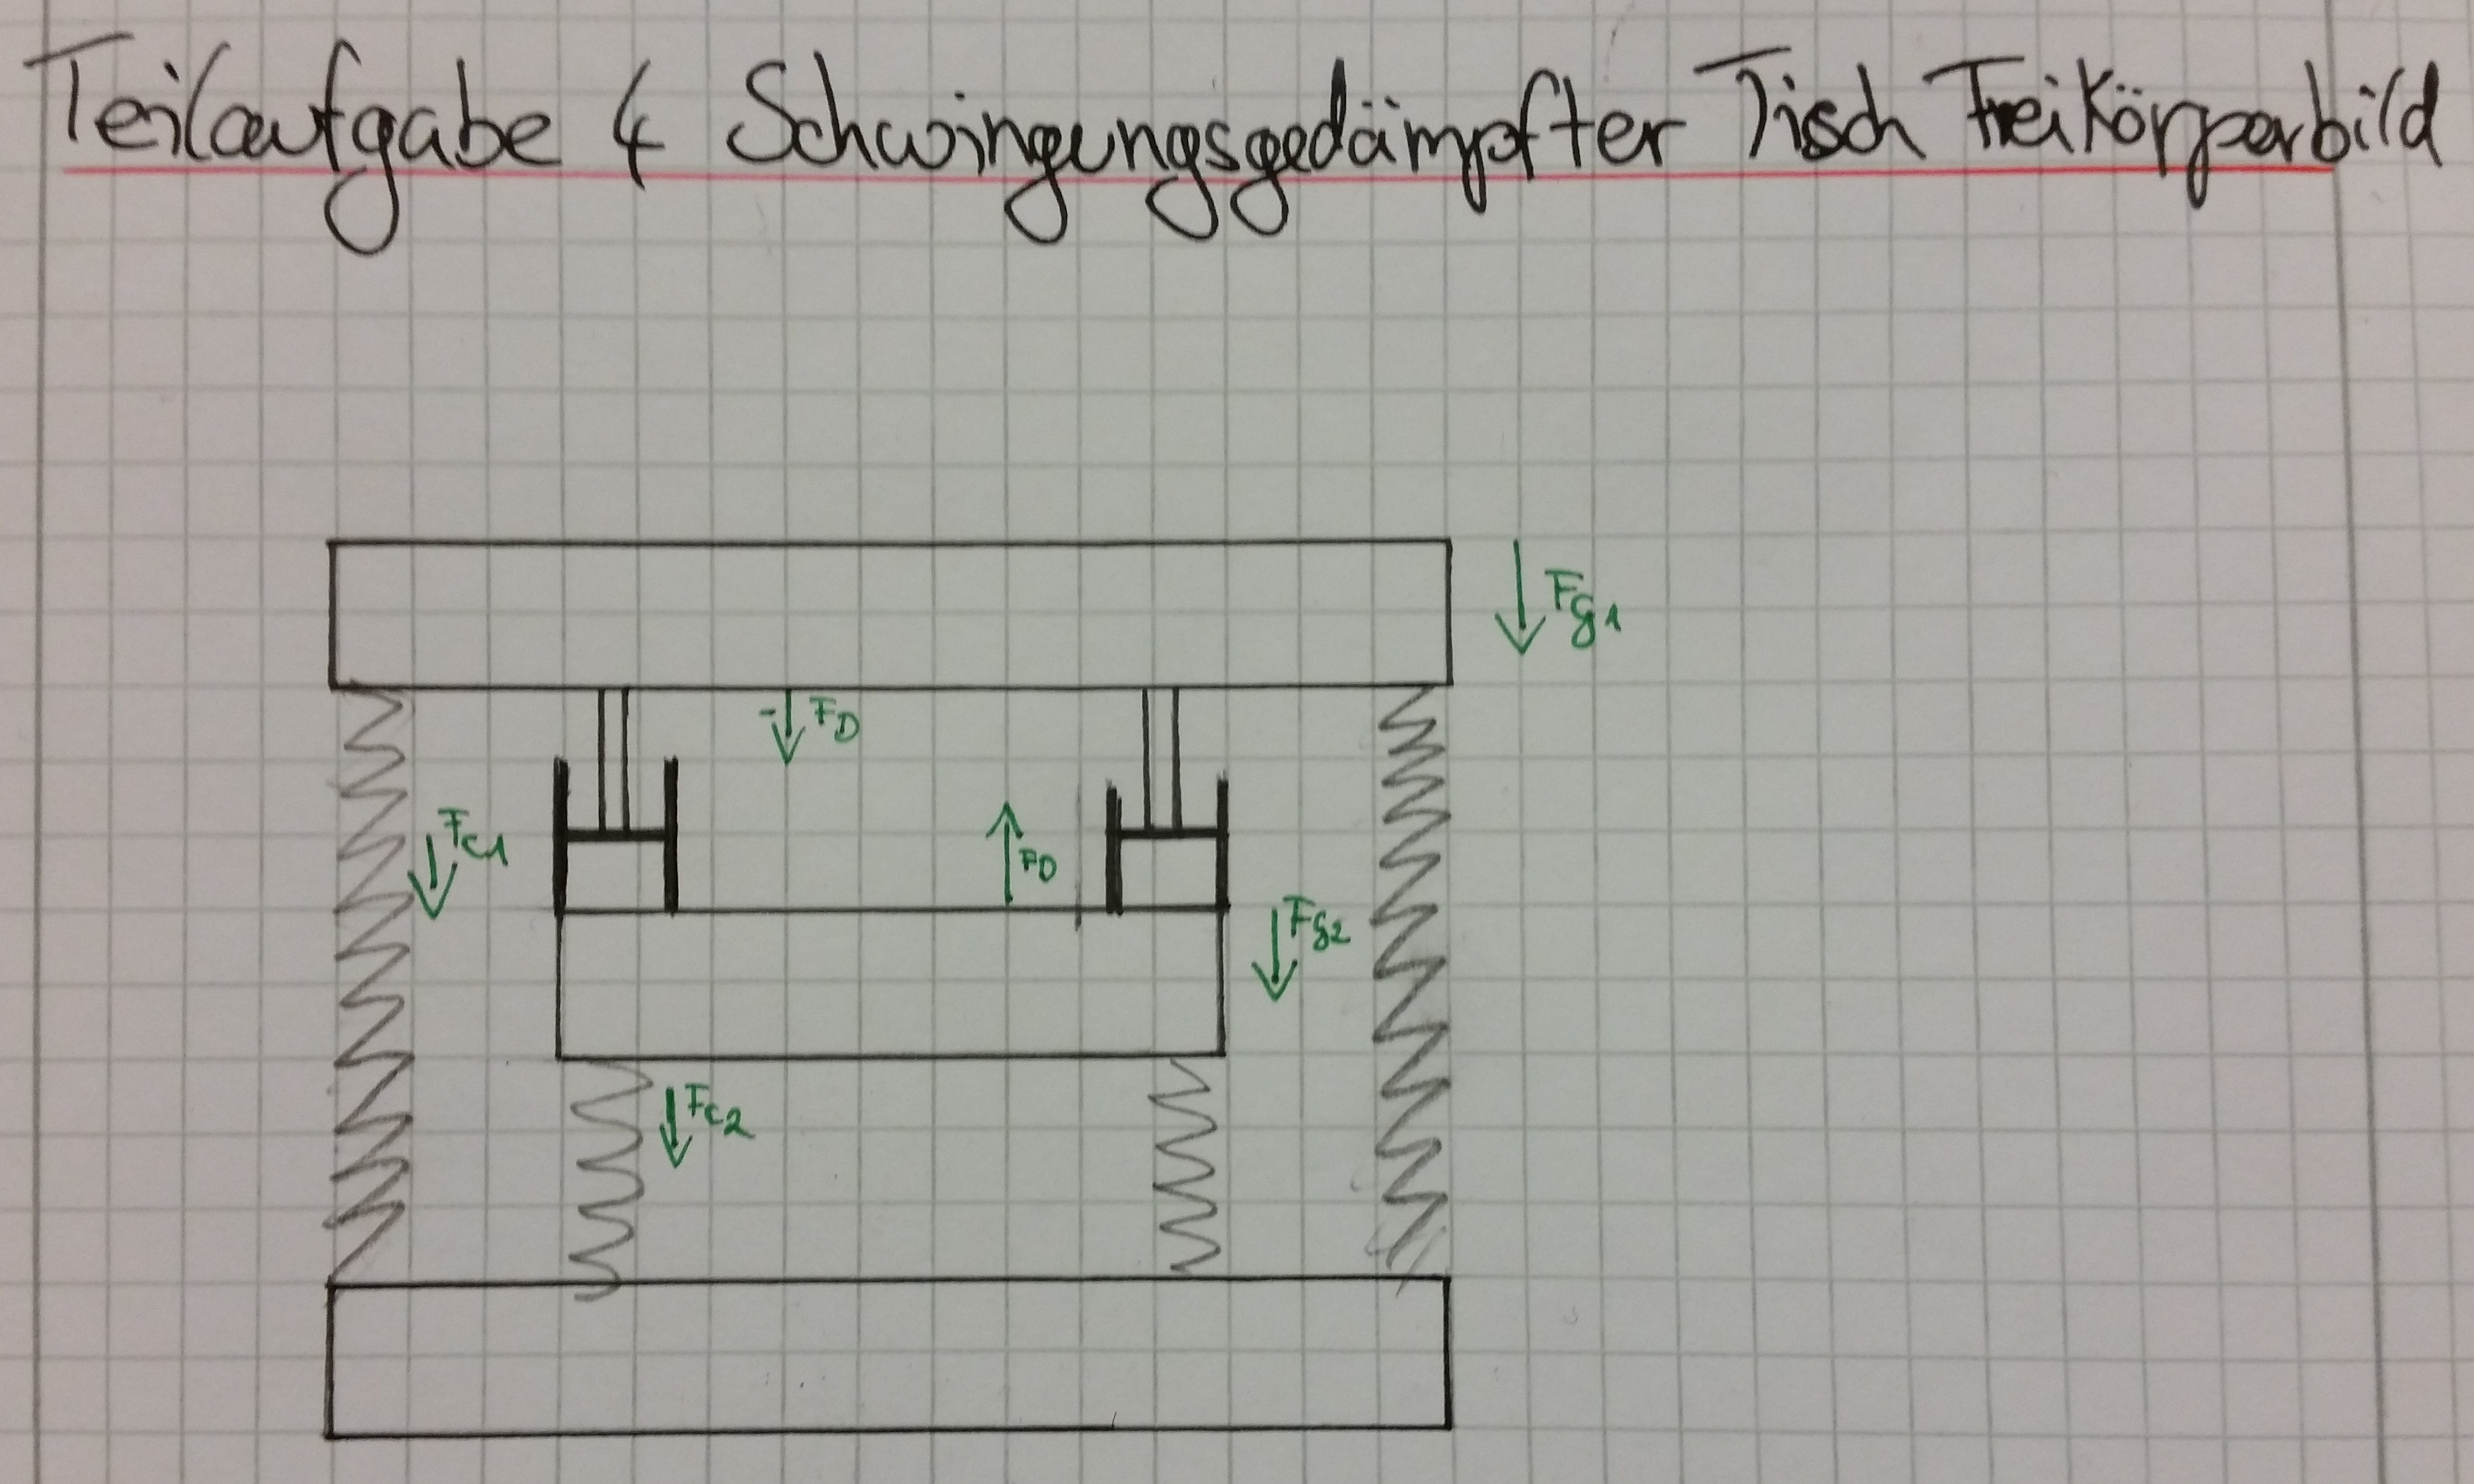 Teilaufgabe 4 Schwingungsgedämpfter Tisch Freikörperbild
Fg1
- FD
Fc1
FD
Fg2
Fc2